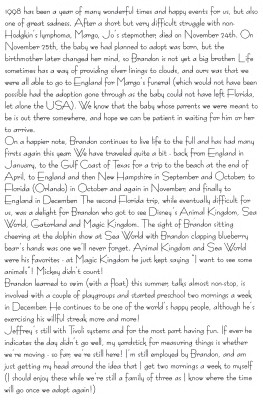 1998 has been a year of many wonderful times and happy events for us, but also
one of great sadness. After a short but very difficult struggle with non-
Hodgkin's lymphoma, Margo, Jo's stepmother, died on November 24th. On
November 25th, the baby we had planned to adopt was born, but the
birthmother later changed her mind, so Brandon is not yet a big brother! Life
sometimes has a way of providing silver linings to clouds, and ours was that we
were all able to go to England for Margo's funeral (which would not have been
possible had the adoption gone through as the baby could not have left Florida,
let alone the USA). We know that the baby whose parents we were meant to
be is out there somewhere, and hope we can be patient in waiting for him or her
to arrive.
On a happier note, Brandon continues to live life to the full and has had many
firsts again this year. We have traveled quite a bit - back from England in
January, to the Gulf Coast of Texas for a trip to the beach at the end of
April, to England and then New Hampshire in September and October, to
Florida (Orlando) in October and again in November, and finally to
England in December. The second Florida trip, while eventually difficult for
us, was a delight for Brandon who got to see Disney's Animal Kingdom, Sea
World, Gatorland and Magic Kingdom. The sight of Brandon sitting
cheering at the dolphin show at Sea World with Brandon clapping blueberry
bear's hands was one we'll never forget. Animal Kingdom and Sea World
were his favorites - at Magic Kingdom he just kept saying "I want to see some
animals"! Mickey didn't count!
Brandon learned to swim (with a float) this summer, talks almost non-stop, is
involved with a couple of playgroups and started preschool two mornings a week
in December. He continues to be one of the world's happy people, although he's
exercising his willful streak more and more!
Jeffrey's still with Tivoli Systems and for the most part having fun. If ever he
indicates the day didn't go well, my yardstick for measuring things is whether
we're moving - so far, we're still here! I'm still employed by Brandon, and am
just getting my head around the idea that I get two mornings a week to myself
(I should enjoy these while we're still a family of three as I know where the time
will go once we adopt again!)